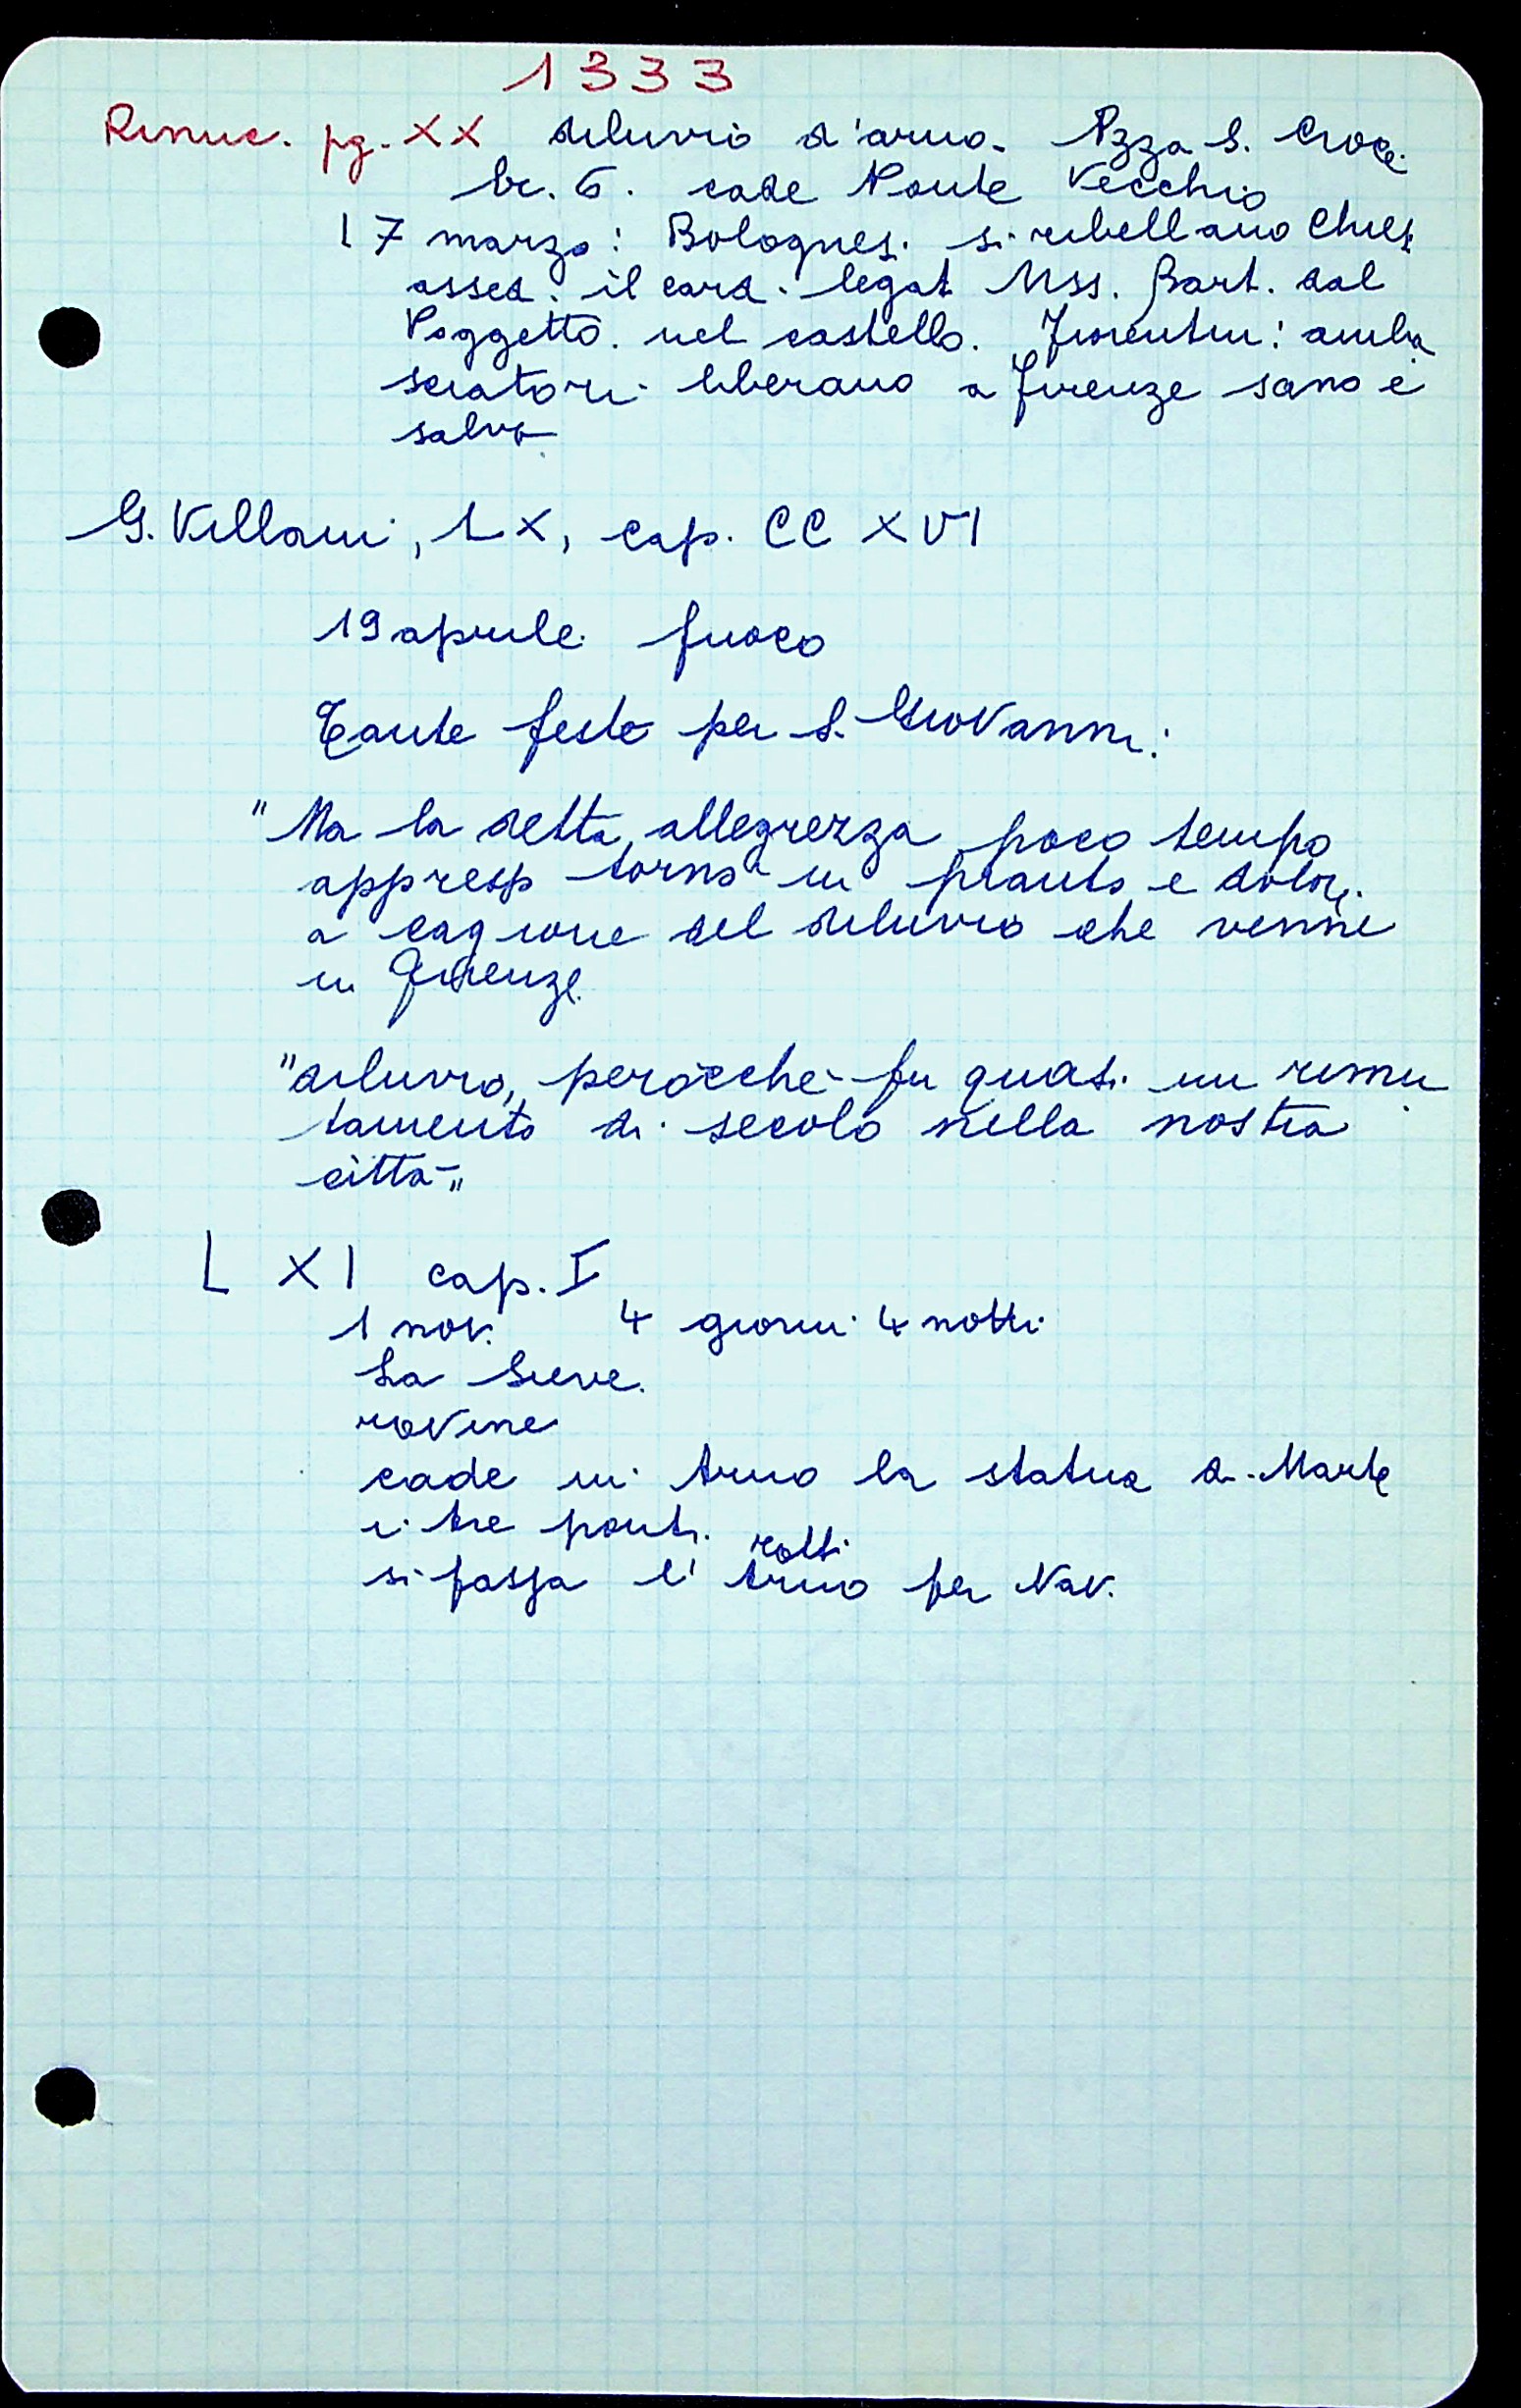 1333
Rinuc. pg. XX diluvio d'arno. Pzza S. Croce
br. 6. cade Ponte Vecchio
17 marzo: Bolognesi si ribellano Chies
assed. il card. legat Mss. Bart. dal
Poggetto. nel castello. Fiorentini: amba
sciatori liberano a Firenze sano e
salvo
G. Villani, L X, cap. CC XVI
19 aprile fuoco
Tante feste per S. Giovanni:
"Ma la detta allegrezza poco tempo
appresso tornò in pianto e dolore
a cagione del diluvio che venne
in Firenze
"diluvio, perocchè fu quasi un rimu
tamento di secolo nella nostra
città"
L XI cap. I
1 nov. 4 giorni 4 notti
La Sieve.
rovine
cade in Arno la statua di Marte
i tre ponti rotti
si passa l'Arno per Nav.